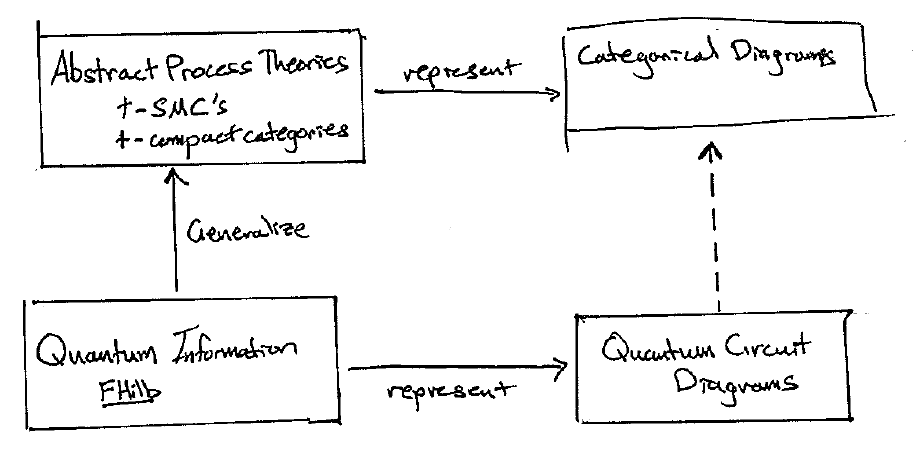 Abstract Process Theories
†-SMC's
†-compact categories
represent
Categorical Diagrams
Generalize
Quantum Information
FHilb
represent
Quantum Circuit
Diagrams